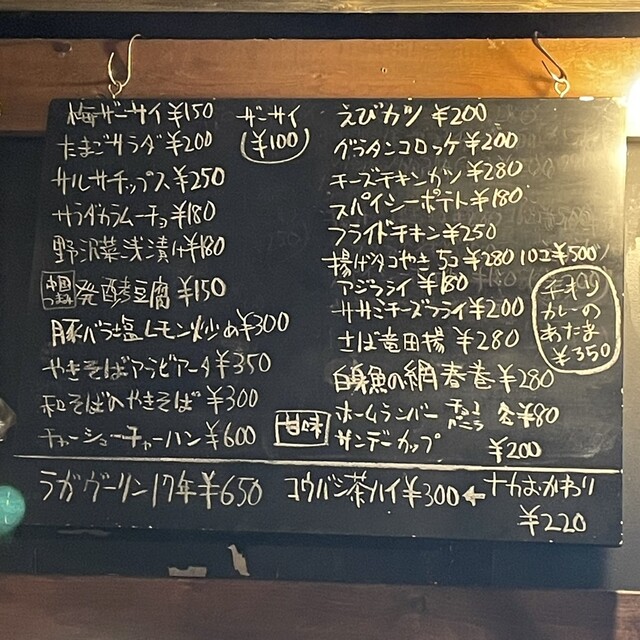 梅ザーサイ ¥150
ザーサイ
(¥100)
たまごサラダ ¥200
サルサチップス ¥250
サラダカラムーチョ ¥180
野沢菜浅漬け ¥180
中国つまみ 発酵豆腐 ¥150
豚バラ塩レモン炒め ¥300
やきそばアラビアータ ¥350
和そばのやきそば ¥300
チャーシューチャーハン ¥600
えびカツ ¥200
グラタンコロッケ ¥200
チーズチキンカツ ¥280
スパイシーポテト ¥180
フライドチキン ¥250
揚げタコやき 5コ ¥280 10コ ¥500
アジフライ ¥180
ササミチーズフライ ¥200
さば竜田揚 ¥280
白身魚の網春巻 ¥280
カレーの
あたま
¥350
甘味
ホームランバー チョコ バニラ 各¥80
サンデーカップ ¥200
ラガヴーリン17年 ¥650
コウバシ茶ハイ ¥300 ← ナカおかわり
¥220